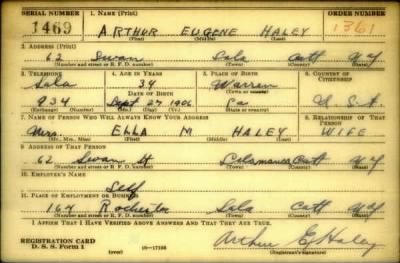 SERIAL NUMBER 1. NAME (Print) ORDER NUMBER
1469 ARTHUR EUGENE HALEY 1361
(First) (Middle) (Last)
2. ADDRESS (Print)
62 Swan Sala Catt NY
(Number and street or R. F. D. number) (Town) (County) (State)
3. TELEPHONE 4. AGE IN YEARS 5. PLACE OF BIRTH 6. COUNTRY OF CITIZENSHIP
Sala 34 Warren
DATE OF BIRTH (Town or county)
934 Sept 27 1906 Pa U.S.A.
(Exchange) (Number) (Mo.) (Day) (Yr.) (State or country)
7. NAME OF PERSON WHO WILL ALWAYS KNOW YOUR ADDRESS 8. RELATIONSHIP OF THAT PERSON
Mrs. ELLA M HALEY WIFE
(Mr., Mrs., Miss) (First) (Middle) (Last)
9. ADDRESS OF THAT PERSON
62 Swan St Salamanca Catt NY
(Number and street or R. F. D. number) (Town) (County) (State)
10. EMPLOYER'S NAME
Self
11. PLACE OF EMPLOYMENT OR BUSINESS
164 Rochester Sala Catt NY
(Number and street or R. F. D. number) (Town) (County) (State)
I AFFIRM THAT I HAVE VERIFIED ABOVE ANSWERS AND THAT THEY ARE TRUE.
REGISTRATION CARD
D. S. S. Form 1 (over) 16—17105 Arthur E. Haley
(Registrant's signature)